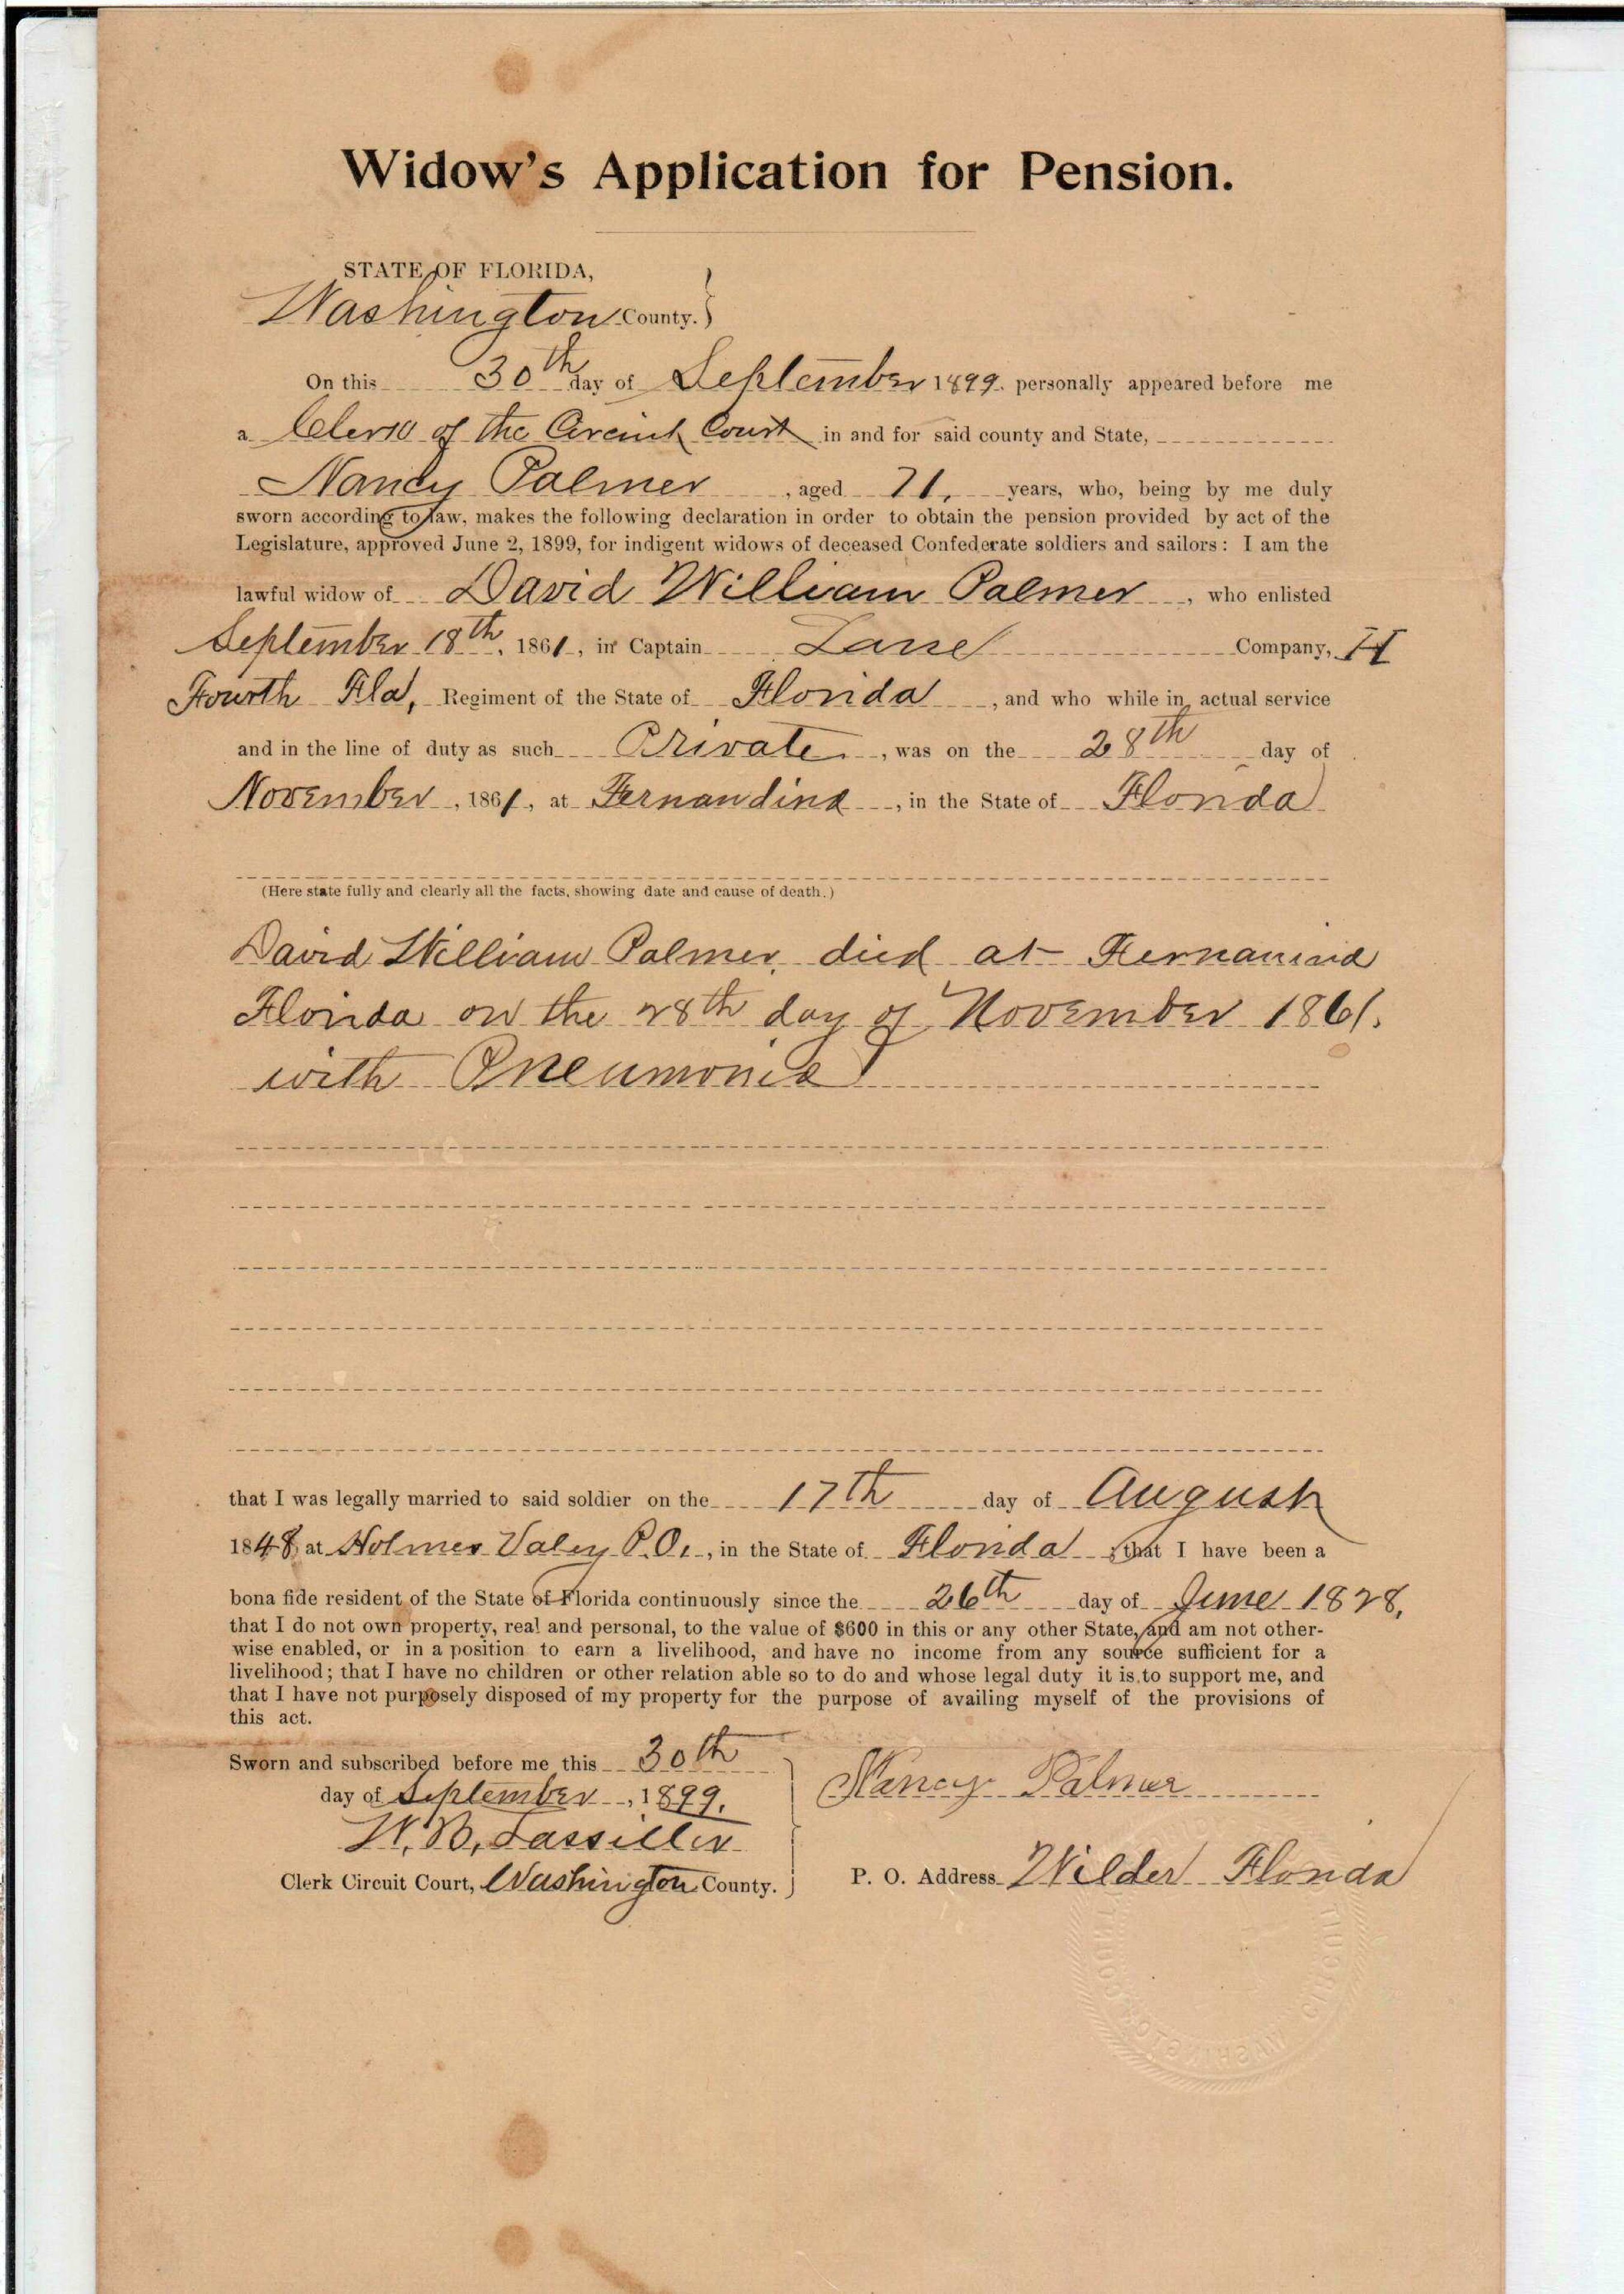 Widow's Application for Pension.
STATE OF FLORIDA,
Washington County.
On this 30th day of September 1899. personally appeared before me
a Clerk of the Circuit Court in and for said county and State,
Nancy Palmer, aged 71, years, who, being by me duly
sworn according to law, makes the following declaration in order to obtain the pension provided by act of the
Legislature, approved June 2, 1899, for indigent widows of deceased Confederate soldiers and sailors: I am the
lawful widow of David William Palmer, who enlisted
September 18th, 1861, in Captain Lane Company, H
Fourth Fla, Regiment of the State of Florida, and who while in actual service
and in the line of duty as such Private, was on the 28th day of
November, 1861, at Fernandina, in the State of Florida
(Here state fully and clearly all the facts, showing date and cause of death.)
David William Palmer, died at Fernanina
Florida on the 28th day of November 1861.
with Pneumonia
that I was legally married to said soldier on the 17th day of August
1848, at Holmes Valey P.O., in the State of Florida; that I have been a
bona fide resident of the State of Florida continuously since the 26th day of June 1828,
that I do not own property, real and personal, to the value of $600 in this or any other State, and am not other-
wise enabled, or in a position to earn a livelihood, and have no income from any source sufficient for a
livelihood; that I have no children or other relation able so to do and whose legal duty it is to support me, and
that I have not purposely disposed of my property for the purpose of availing myself of the provisions of
this act.
Sworn and subscribed before me this 30th
day of September, 1899.
W. B. Lassitter
Clerk Circuit Court, Washington County.
Nancy Palmer
P. O. Address Wilder Florida